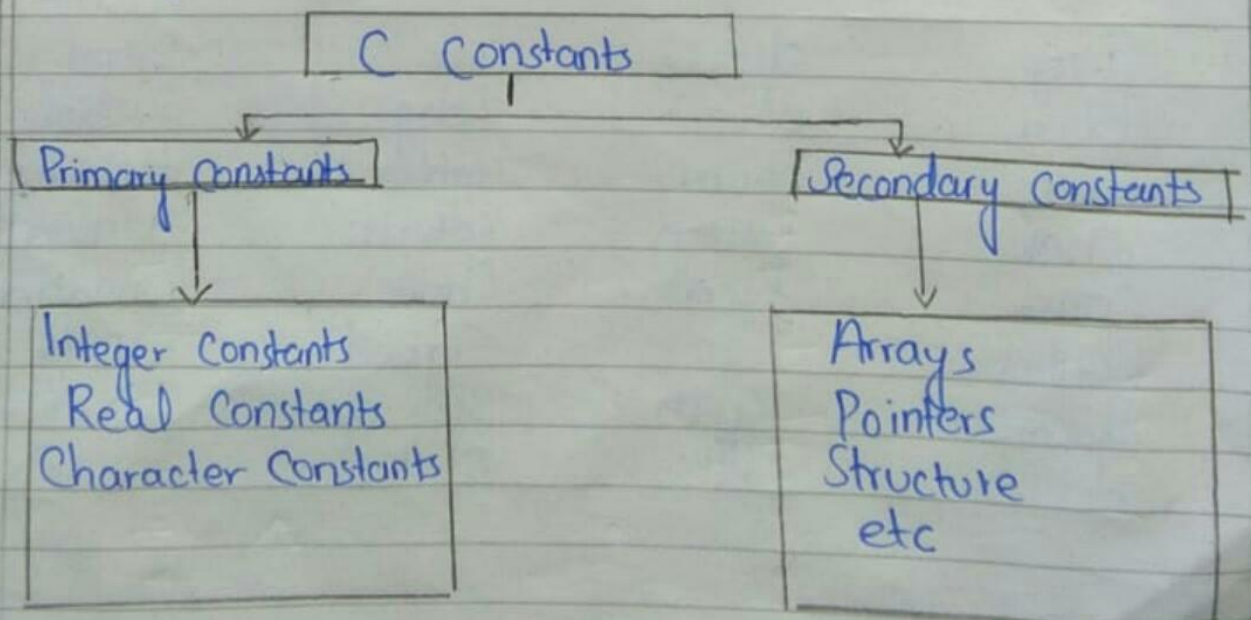 C Constants
Primary Constants
Secondary Constants
Integer Constants
Real Constants
Character Constants
Arrays
Pointers
Structure
etc